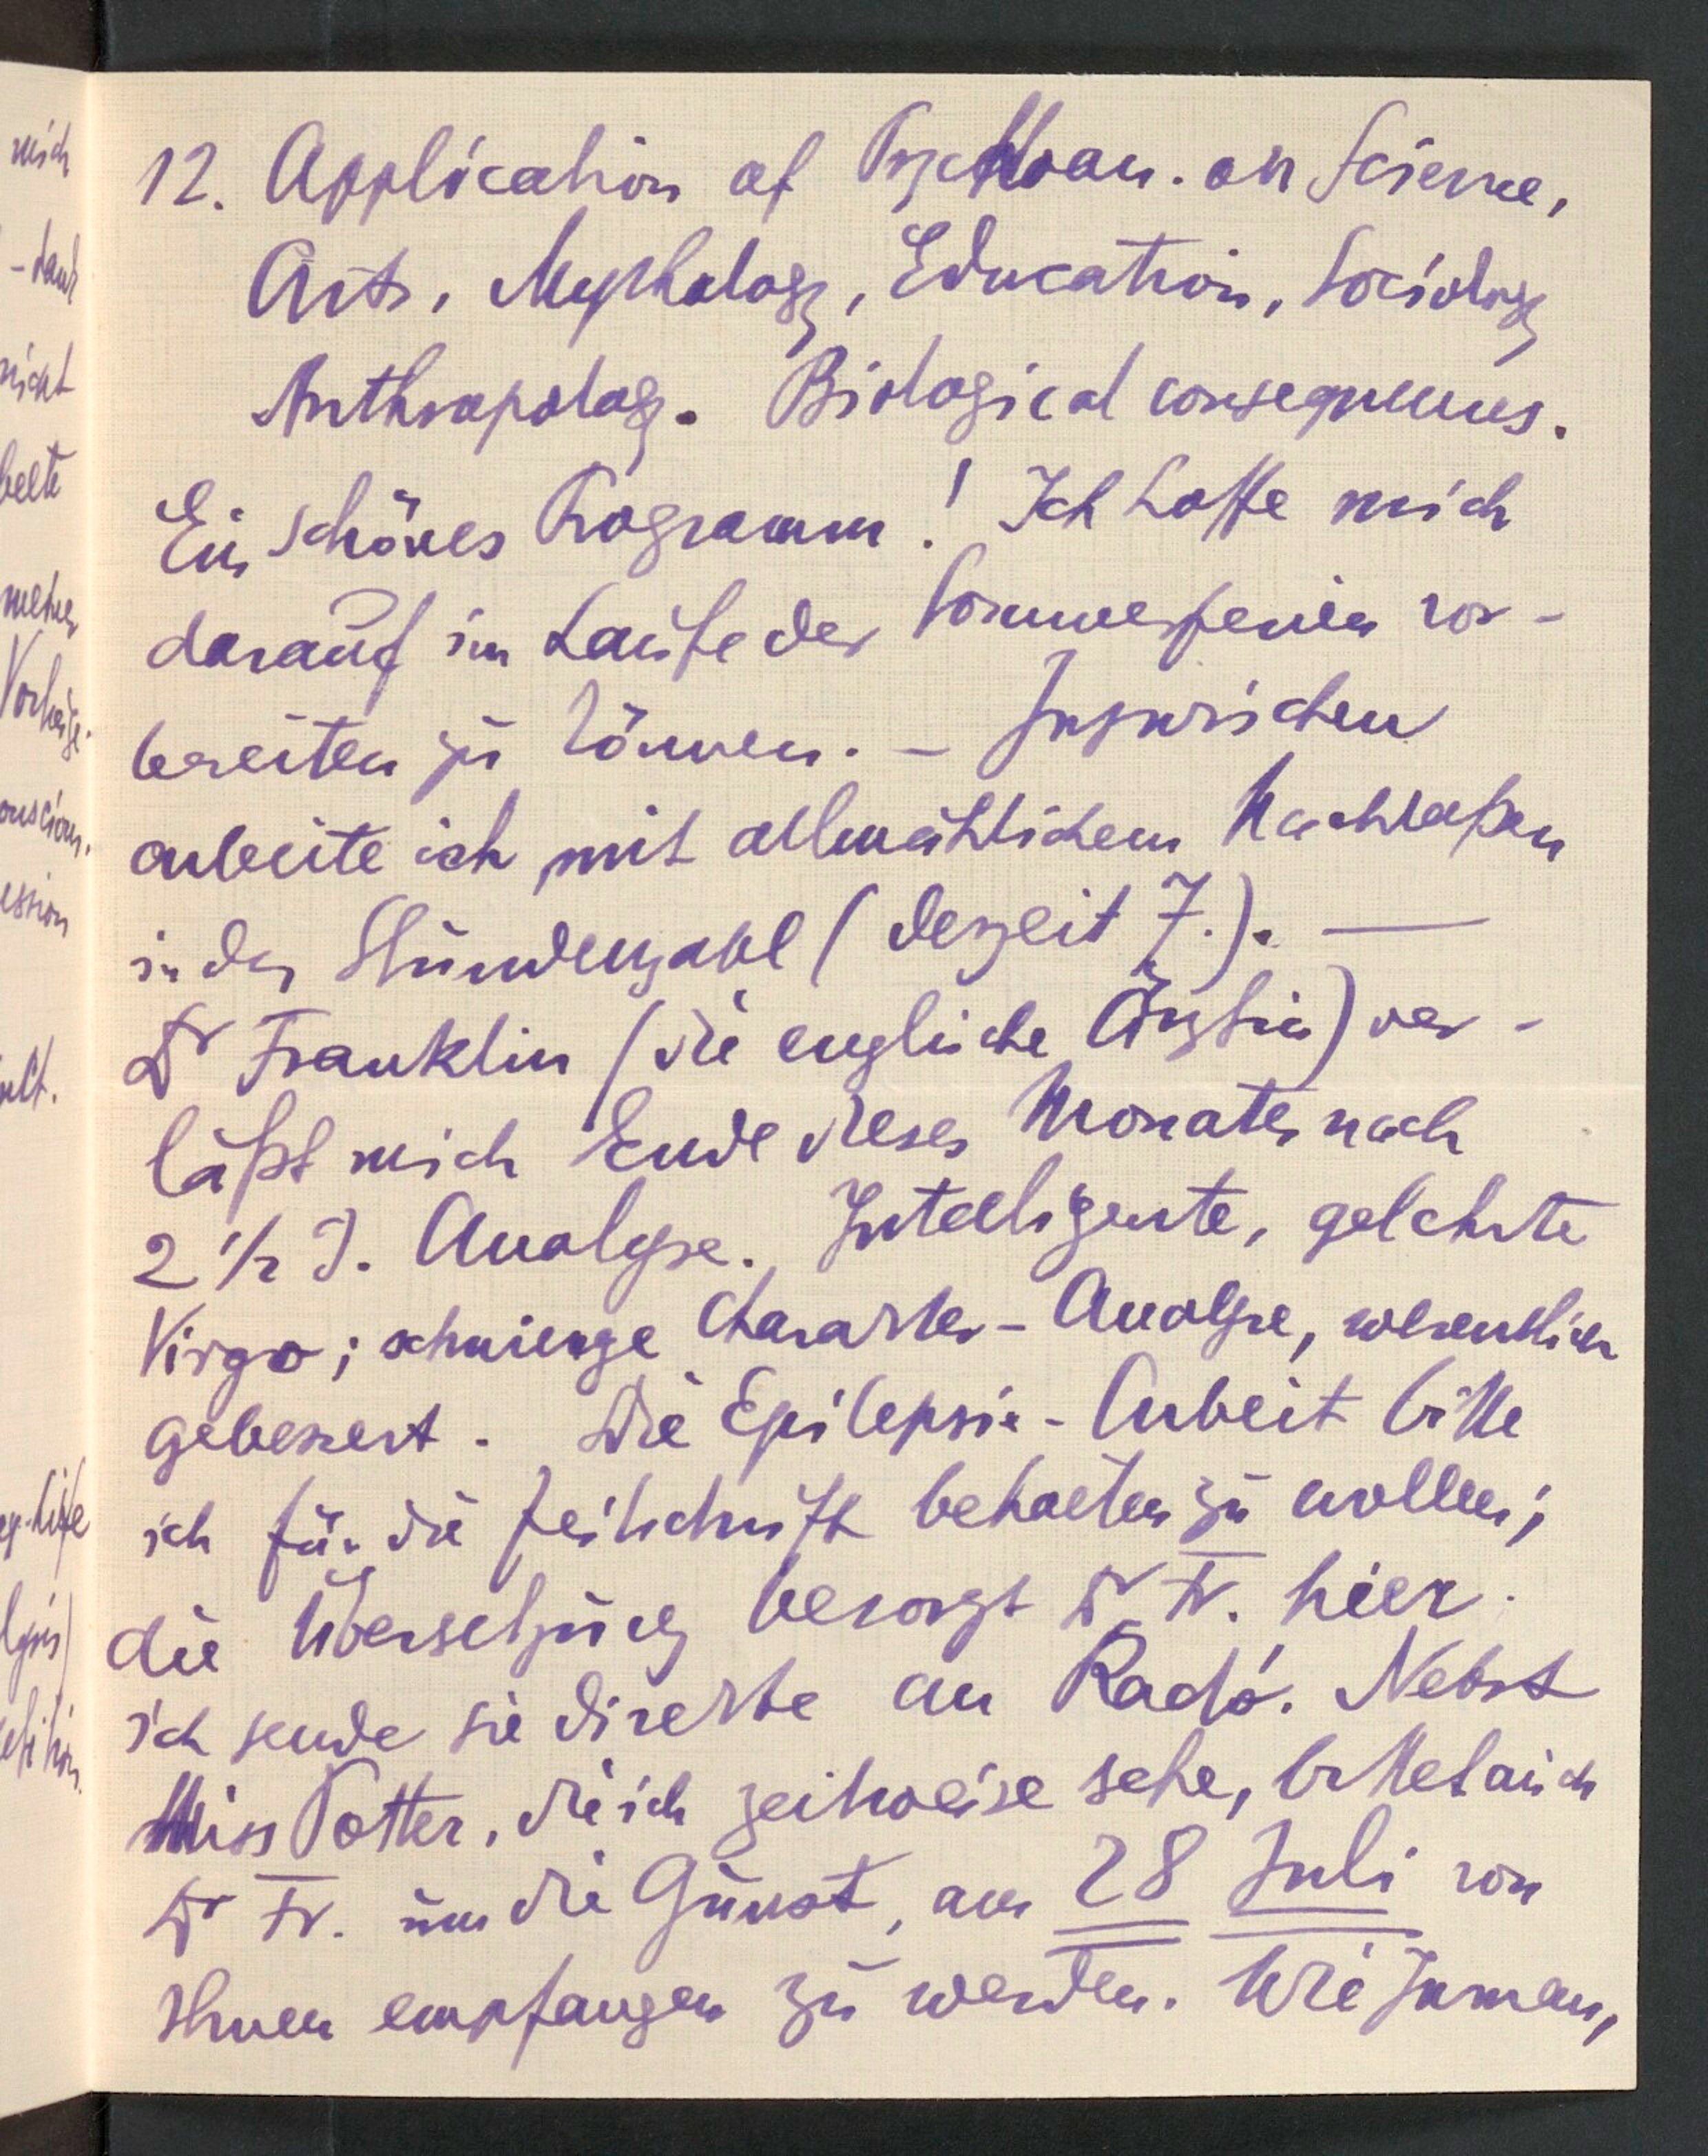 12. Application of Psychoan. on Science,
Arts, Mythology, Education, Sociology
Anthropology. Biological consequences.
Ein schönes Programm! Ich hoffe mich
darauf im Laufe der Sommerferien vor-
bereiten zu können. – Inzwischen
arbeite ich mit allmählichem Nachlaßen
in der Stundenzahl (derzeit 7.). —
Dr Franklin (die englische Ärztin) ver-
läßt mich Ende dieses Monates nach
2 1/2 J. Analyse. Intelligente, gelehrte
Virgo; schwierige Charakter-Analyse, wesentlich
gebessert. Die Epilepsie-Arbeit bitte
ich für die Zeitschrift behalten zu wollen;
die Übersetzung besorgt Dr Fr. hier.
ich sende sie direkte an Radó. Nebst
Miss Potter, die ich zeitweise sehe, bittet auch
Dr Fr. um die Gunst, am 28 Juli von
Ihnen empfangen zu werden. Wie Inman,